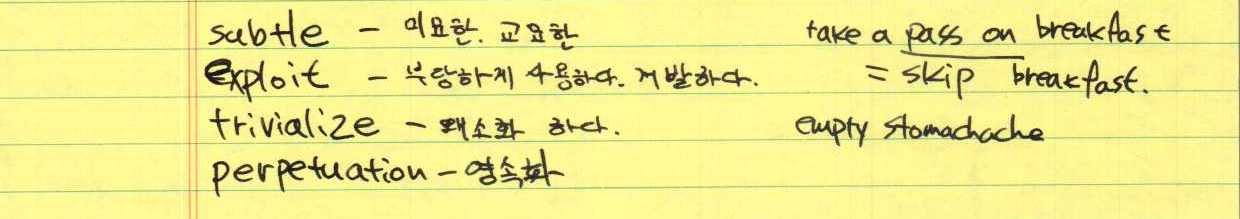 subtle - 미묘한. 교묘한
exploit - 부당하게 사용하다. 개발하다.
trivialize - 왜소화 하다.
perpetuation - 영속화
take a pass on breakfast
= skip breakfast.
empty stomachache